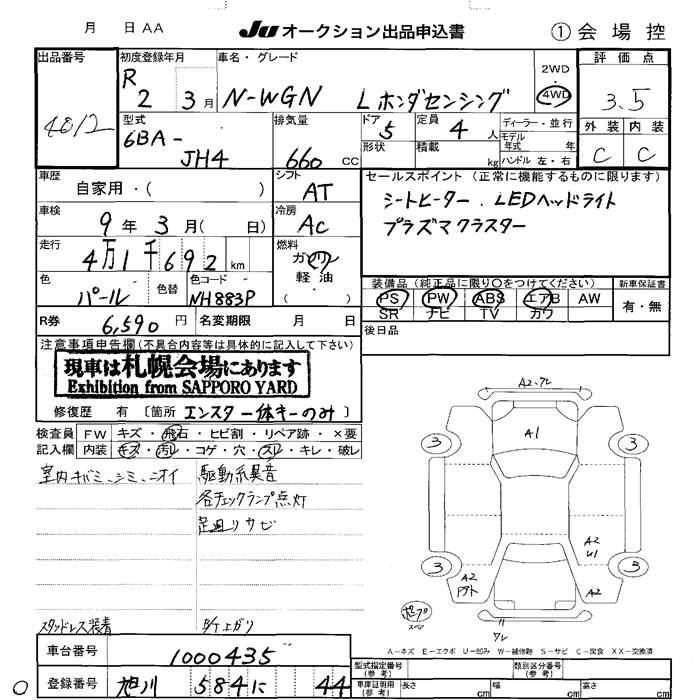 月 日 AA
JU オークション出品申込書
① 会場控
出品番号
4012
初度登録年月
R 2 3月
車名・グレード
N-WGN Lホンダセンシング
2WD
・
4WD
評価点
3.5
外装 内装
C C
型式
6BA-
JH4
排気量
660 CC
ドア 5
形状
定員 4 人
積載 kg
ディーラー・並行
モデル年式 年
ハンドル 左・右
車歴
自家用・( )
シフト
AT
セールスポイント (正常に機能するものに限ります)
シートヒーター、LEDヘッドライト
プラズマクラスター
車検
9年 3月( 日)
冷房
AC
走行
4万1千692 km
燃料
ガソリン
軽油
( )
色
パール
色替
色コード
NH883P
装備品 (純正品に限り○をつけてください)
PS PW ABS エアB AW
SR ナビ TV カワ
新車保証書
有・無
R券
6,590 円
名変期限 月 日
後日品
注意事項申告欄(不具合内容等は具体的に記入して下さい)
現車は札幌会場にあります
Exhibition from SAPPORO YARD
修復歴 有 〔箇所 エンスター体キーのみ〕
検査員
記入欄
FW キズ・飛石・ヒビ割・リペア跡・×要
内装 キズ・汚レ・コゲ・穴・スレ・キレ・破レ
室内キバミ、シミ、ニオイ
駆動系異音
各チェックランプ点灯
足回リサビ
スタッドレス装着
A2.ワレ
A1
3
3
3
3
A2
U1
A2
A2
ワレ
スペア
A－キズ E－エクボ U－凹み W－補修跡 S－サビ C－腐食 XX－交換済
車台番号
1000435
登録番号
旭川 584 に 44
型式指定番号
(参考)
類別区分番号
(参考)
車庫証明用
(参考)
長さ cm
幅 cm
高さ cm